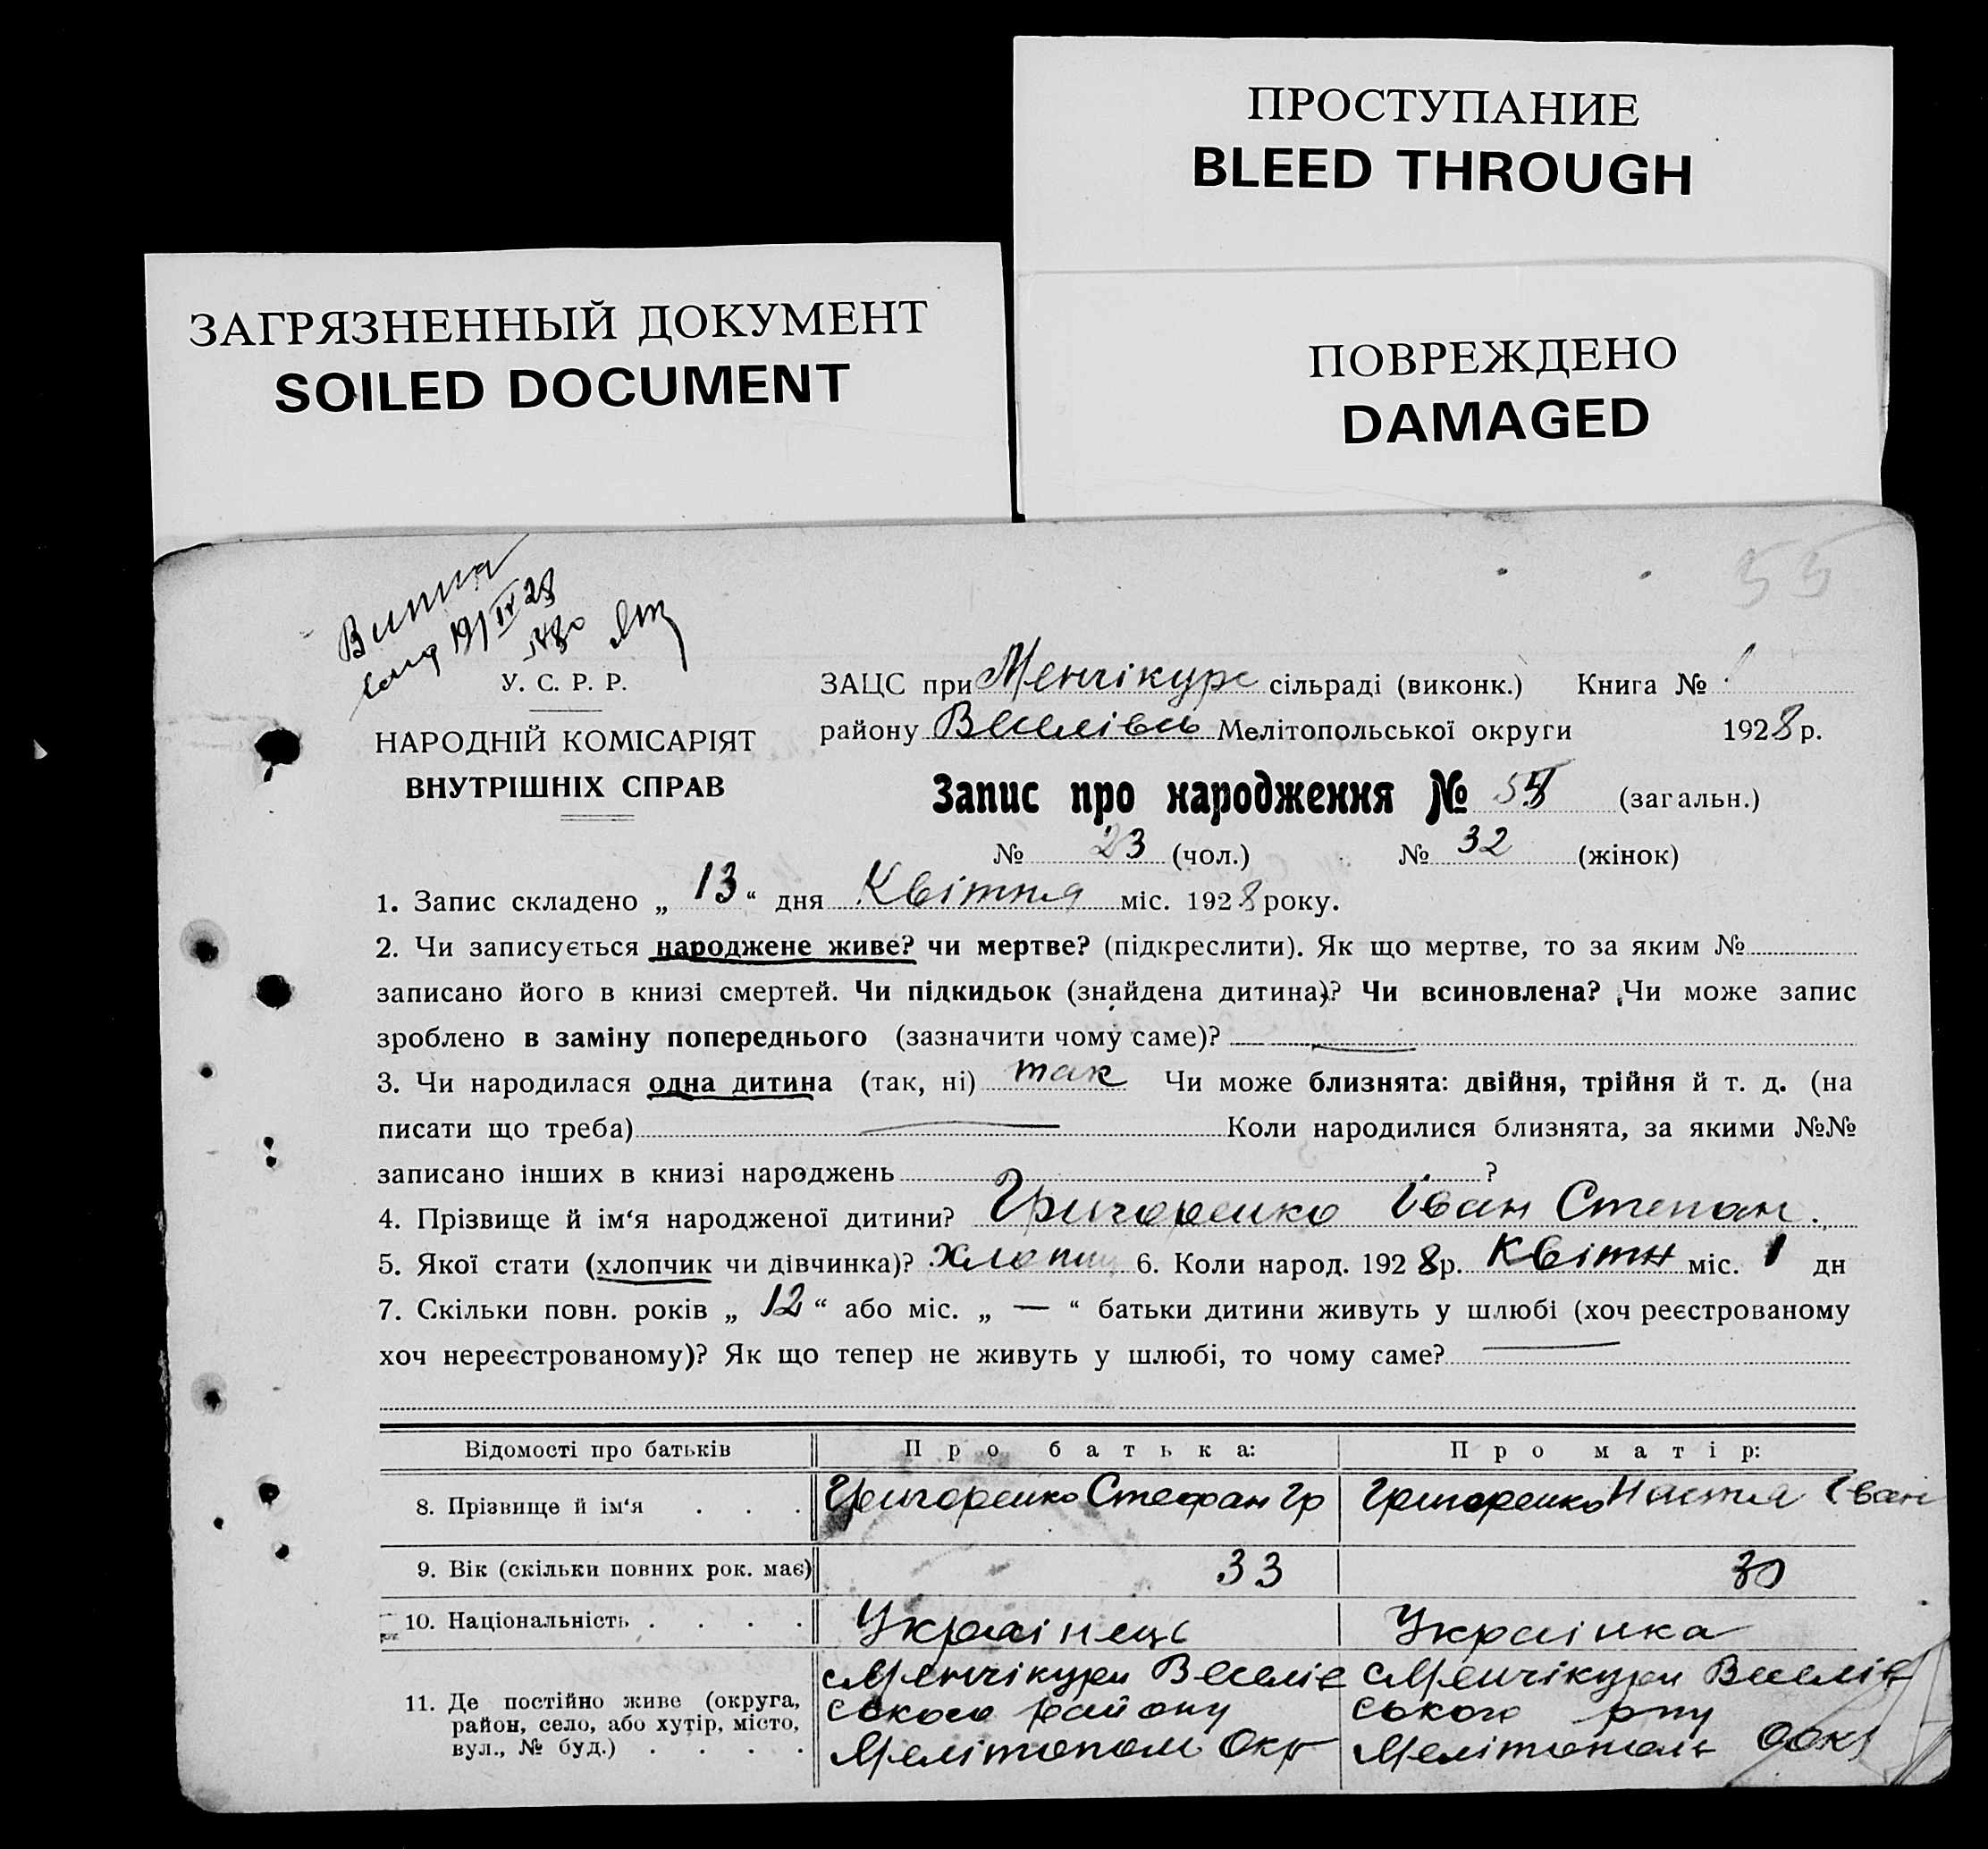 ПРОСТУПАНИЕ
BLEED THROUGH
ЗАГРЯЗНЕННЫЙ ДОКУМЕНТ
SOILED DOCUMENT
ПОВРЕЖДЕНО
DAMAGED
55
19/IV 28
У. С. Р. Р.
НАРОДНІЙ КОМІСАРІЯТ
ВНУТРІШНІХ СПРАВ
ЗАЦС при Менчікур сільраді (виконк.) Книга №
району Веселівсь Мелітопольської округи 1928 р.
Запис про народження № (загальн.)
№ 23 (чол.) № 32 (жінок)
1. Запис складено „ 13 “ дня Квітня міс. 1928 року.
2. Чи записується народжене живе? чи мертве? (підкреслити). Як що мертве, то за яким №
записано його в книзі смертей. Чи підкидьок (знайдена дитина)? Чи всиновлена? Чи може запис
зроблено в заміну попереднього (зазначити чому саме)? —
3. Чи народилася одна дитина (так, ні) так Чи може близнята: двійня, трійня й т. д. (на
писати що треба) — Коли народилися близнята, за якими №№
записано інших в книзі народжень ?
4. Прізвище й ім‘я народженої дитини? Григоренко Іван Степан.
5. Якої стати (хлопчик чи дівчинка)? хлопчи 6. Коли народ. 1928 р. Квітн міс. 1 дн
7. Скільки повн. років „ 12 “ або міс. „ — “ батьки дитини живуть у шлюбі (хоч реєстрованому
хоч нереєстрованому)? Як що тепер не живуть у шлюбі, то чому саме? —
Відомості про батьків Про батька: Про матір:
8. Прізвище й ім‘я . . . Григоренко Стефан Гр Григоренко Настя Іван
9. Вік (скільки повних рок. має) 33 30
10. Національність . . . . Українець Українка
11. Де постійно живе (округа, район, село, або хутір, місто, вул., № буд.) . . . .
Менчікури Веселів Менчікури Веселів
ського району ського р-ну
Мелітополь Окр Мелітополь Окр